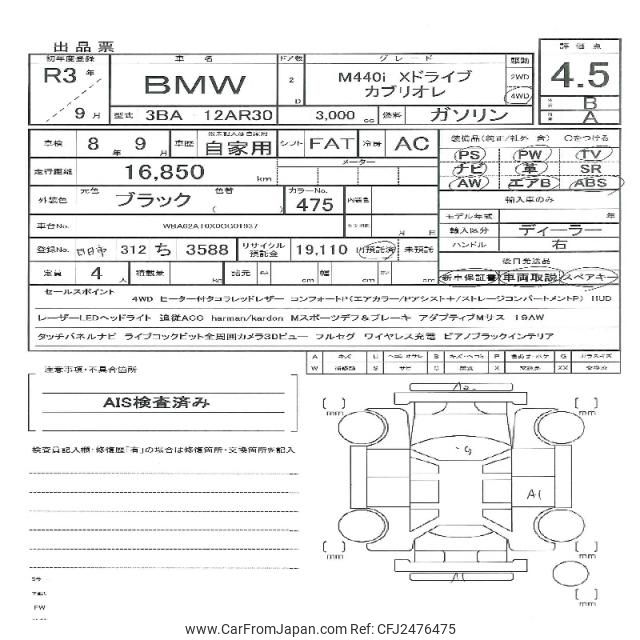 出品票
初年度登録 車名 ドア数 グレード 駆動 評価点
R3年 BMW 2 D M440i Xドライブ 2WD 4.5
カブリオレ 4WD
／ 9月 B
型式 3BA 12AR30 3,000 cc 燃料 ガソリン A
車検 8年 9月 車歴 自家用 シフト FAT 冷房 AC 装備品(純正/社外 含) ○をつける
走行距離 16,850 km メーター PS PW TV
ナビ 革 SR
外装色 元色 ブラック 色替 ( カラーNo. 475 内装色 AW エアB ABS
輸入車のみ
車台No. 月 日 モデル年式 年
輸入区分 ディーラー
登録No. 四日市 312 ち 3588 リサイクル預託金 19,110 預託済 未預託 ハンドル 右
後日発送品
定員 4人 積載量 kg 諸元 長 cm 幅 cm 高 cm 新車保証書 車両取説 スペアキー
セールスポイント
4WD ヒーター付タコラレッドレザー コンフォートP(エアカラー/Pアシスト+/ストレージコンパートメントP) HUD
レーザーLEDヘッドライト 追従ACC harman/kardon Mスポーツデフ&ブレーキ アダプティブMサス 19AW
タッチパネルナビ ライブコックピット全周囲カメラ3Dビュー フルセグ ワイヤレス充電 ピアノブラックインテリア
注意事項・不具合箇所
AIS検査済み
検査員記入欄・修復歴「有」の場合は修復箇所・交換箇所を記入
A キズ U S P G
W X XX
A2
mm mm
G
A(
mm mm
A(
mm
FW
www.CarFromJapan.com Ref: CFJ2476475